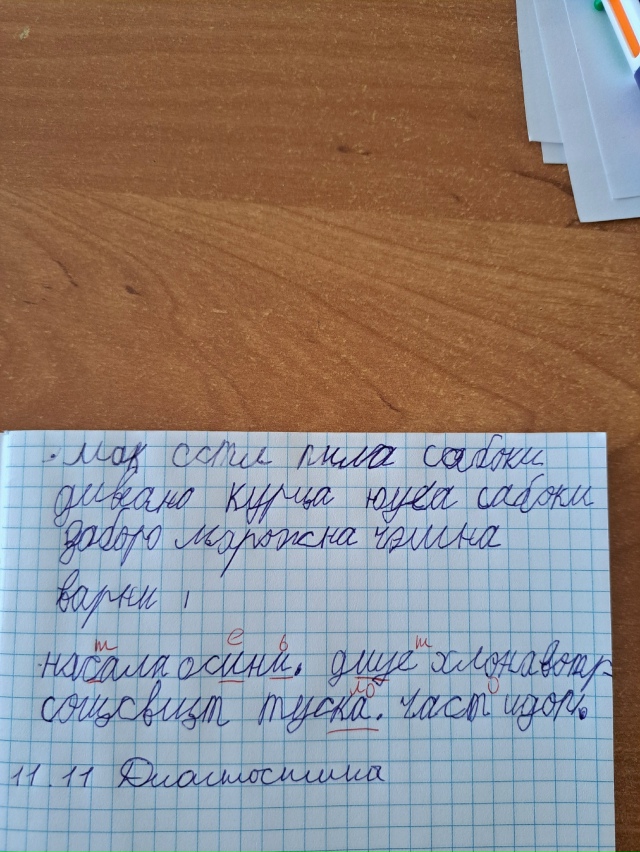 Мак сстл пила сабоки
дивеано курца юуса сабоки
заборо марожна чэшна
варни
насала осини. дище хлонавотр
сонцсвицт туска. част идоп.
11.11 Диагностика